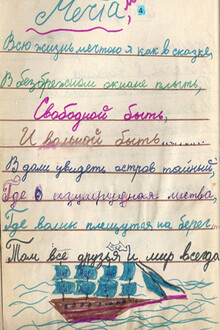 Мечта,
4
Всю жизнь мечтаю я как в сказке,
В безбрежном океане плыть,
Свободной быть,
И вольной быть........
В дали увидеть остров тайный,
Где изумрудная листва,
Где волны плещутся на берег...
Там все друзья и мир всегда